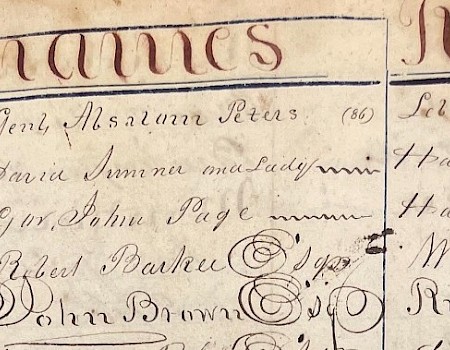 names
Genl, Absalom Peters (86) Leb
David Sumner and Lady Ha
Gov, John Page Ha
Robert Barker Esqr
John Brown Esq